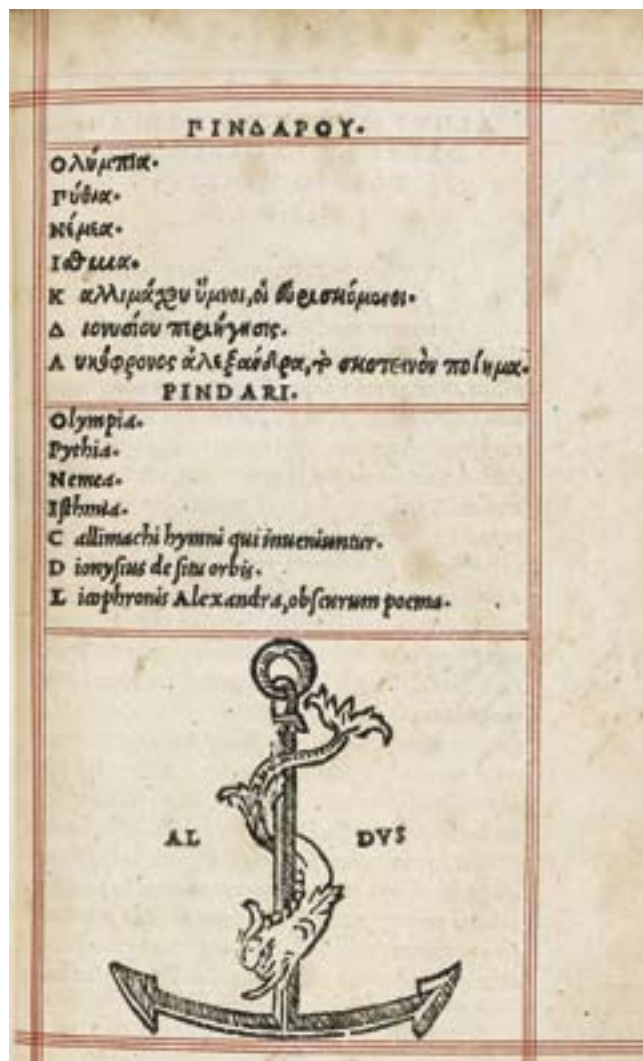 ΠΙΝΔΑΡΟΥ.
Ολύμπια.
Πύθια.
Νέμεα.
Ισθμια.
Κ αλλιμάχου ὕμνοι, οἱ ἑυρισκόμενοι.
Δ ιονυσίου περιήγησις.
Λ υκόφρονος ἀλεξάνδρα, τὸ σκοτεινὸν ποίημα.
PINDARI.
Olympia.
Pythia.
Nemea.
Iſthmia.
C allimachi hymni qui inueniuntur.
D ionyſius de ſitu orbis.
L icophronis Alexandra, obſcurum poema.
AL DVS